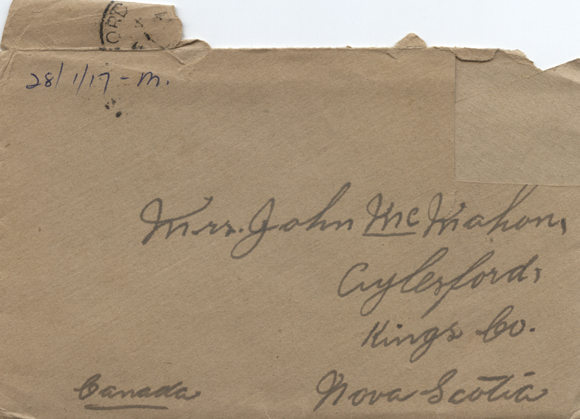 ORD
28/1/17 - m.
Mrs. John McMahon,
Aylesford,
Kings Co.
Nova Scotia
Canada